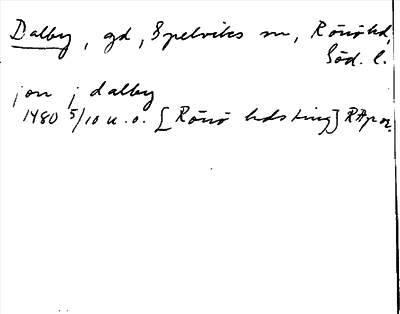 Dalby, gd, Spelviks sn, Rönö hd,
Söd. l.
jon j dalby
1480 5/10 u.o. [Rönö hdsting] RAp or.